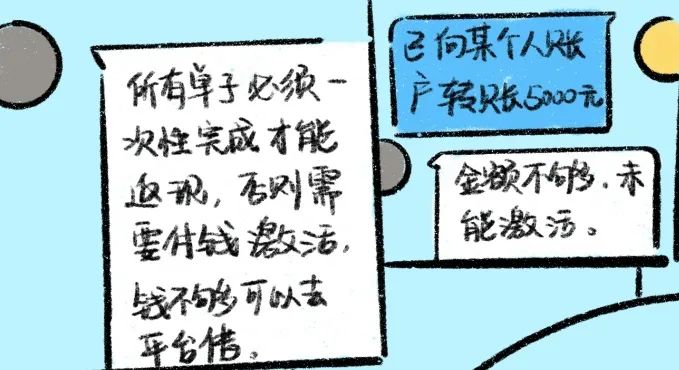 所有单子必须一
次性完成才能
返现，否则需
要付钱激活，
钱不够可以去
平台借。
已向某个人账
户转账5000元
金额不够，未
能激活。